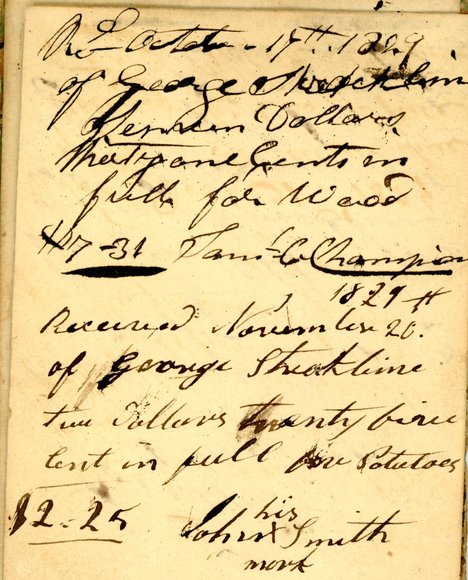 Rd October 17th. 1829
of George Strickline
Seven Dollars
thirty one Cents in
full for Wood
$7-31 Saml C Champion
1829
Received November 20.
of George Strickline
two Dollars twenty five
Cent in full for Potatoes
$2-25 his
John X Smith
mark